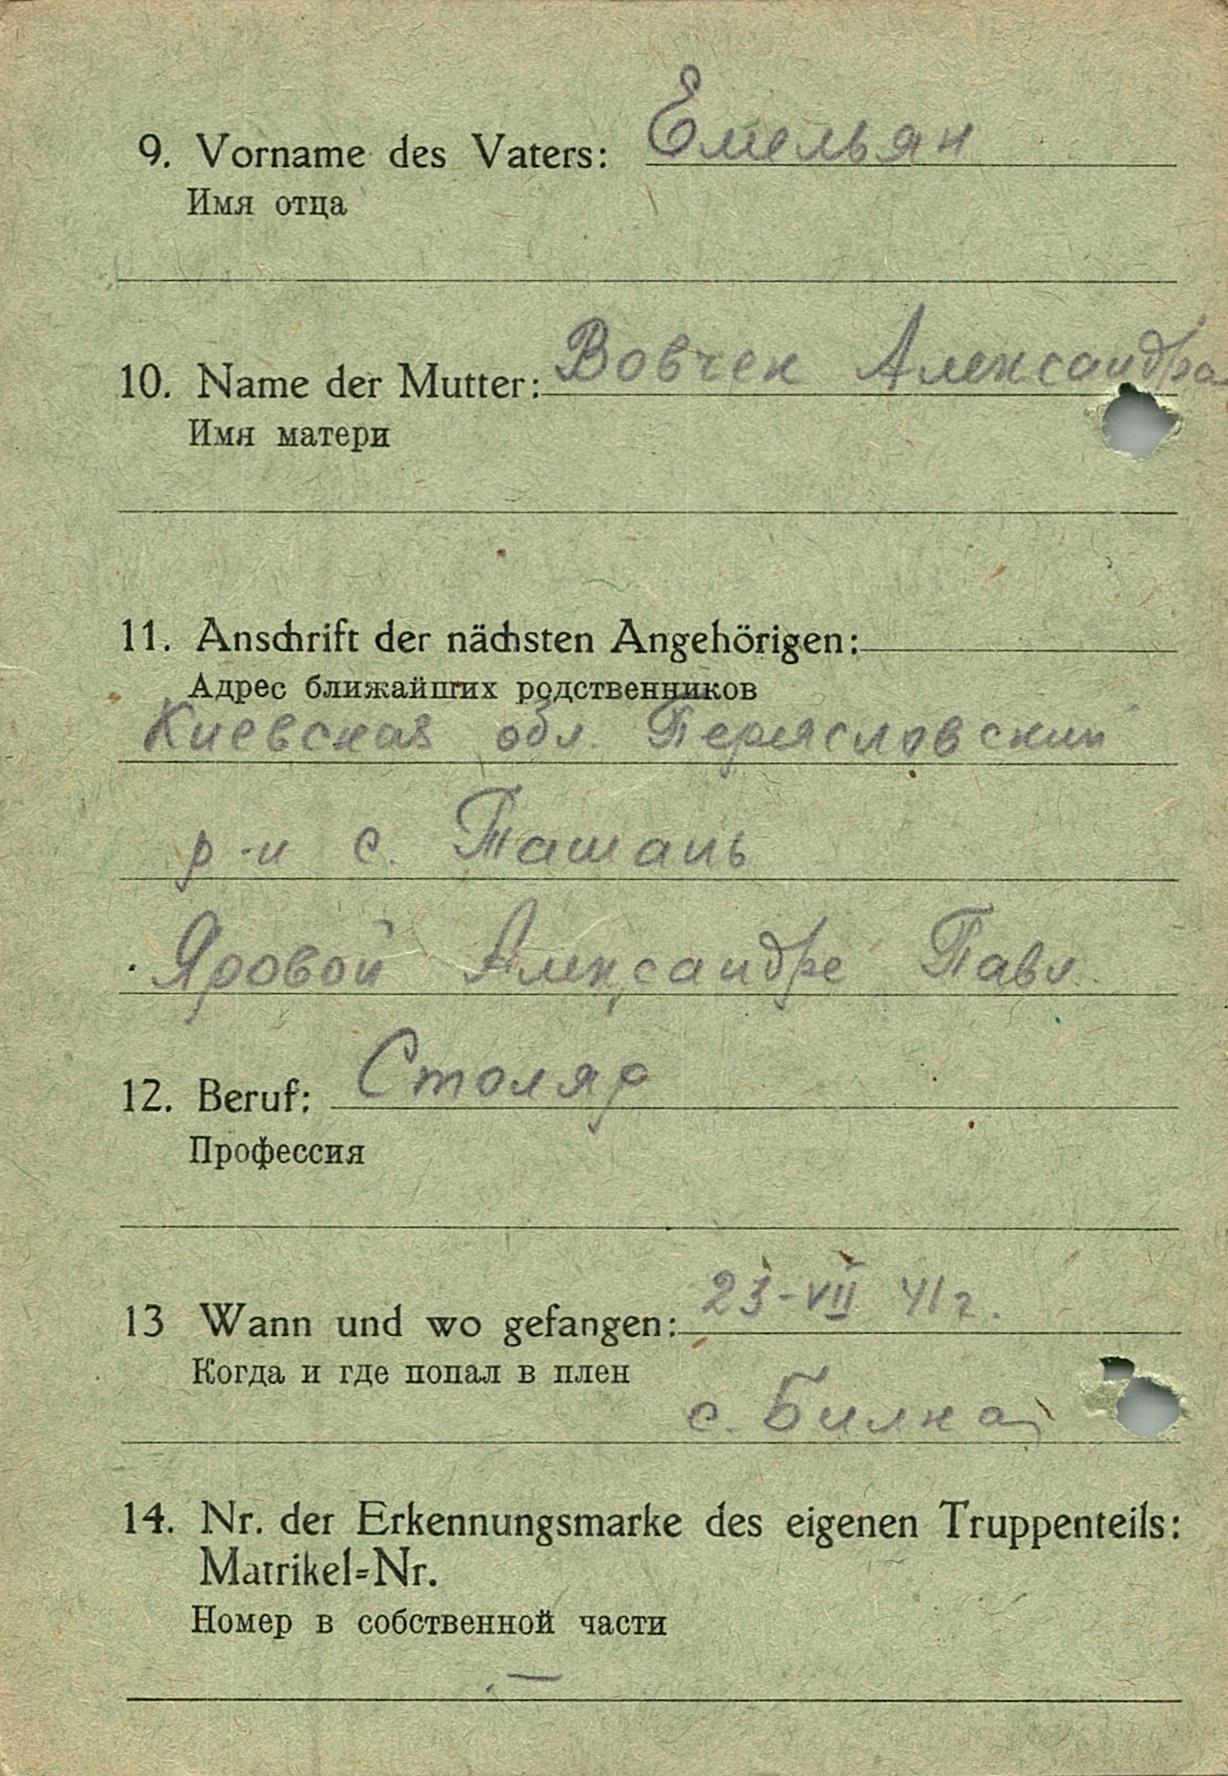 9. Vorname des Vaters: Емельян
Имя отца
10. Name der Mutter: Вовчек Александра
Имя матери
11. Anschrift der nächsten Angehörigen:
Адрес ближайших родственников
Киевская обл. Перясловский
р-н с. Ташань
Яровой Александре Павл.
12. Beruf: Столяр
Профессия
13 Wann und wo gefangen: 23-VII 41г.
Когда и где попал в плен
с. Билка
14. Nr. der Erkennungsmarke des eigenen Truppenteils:
Matrikel=Nr.
Номер в собственной части
—